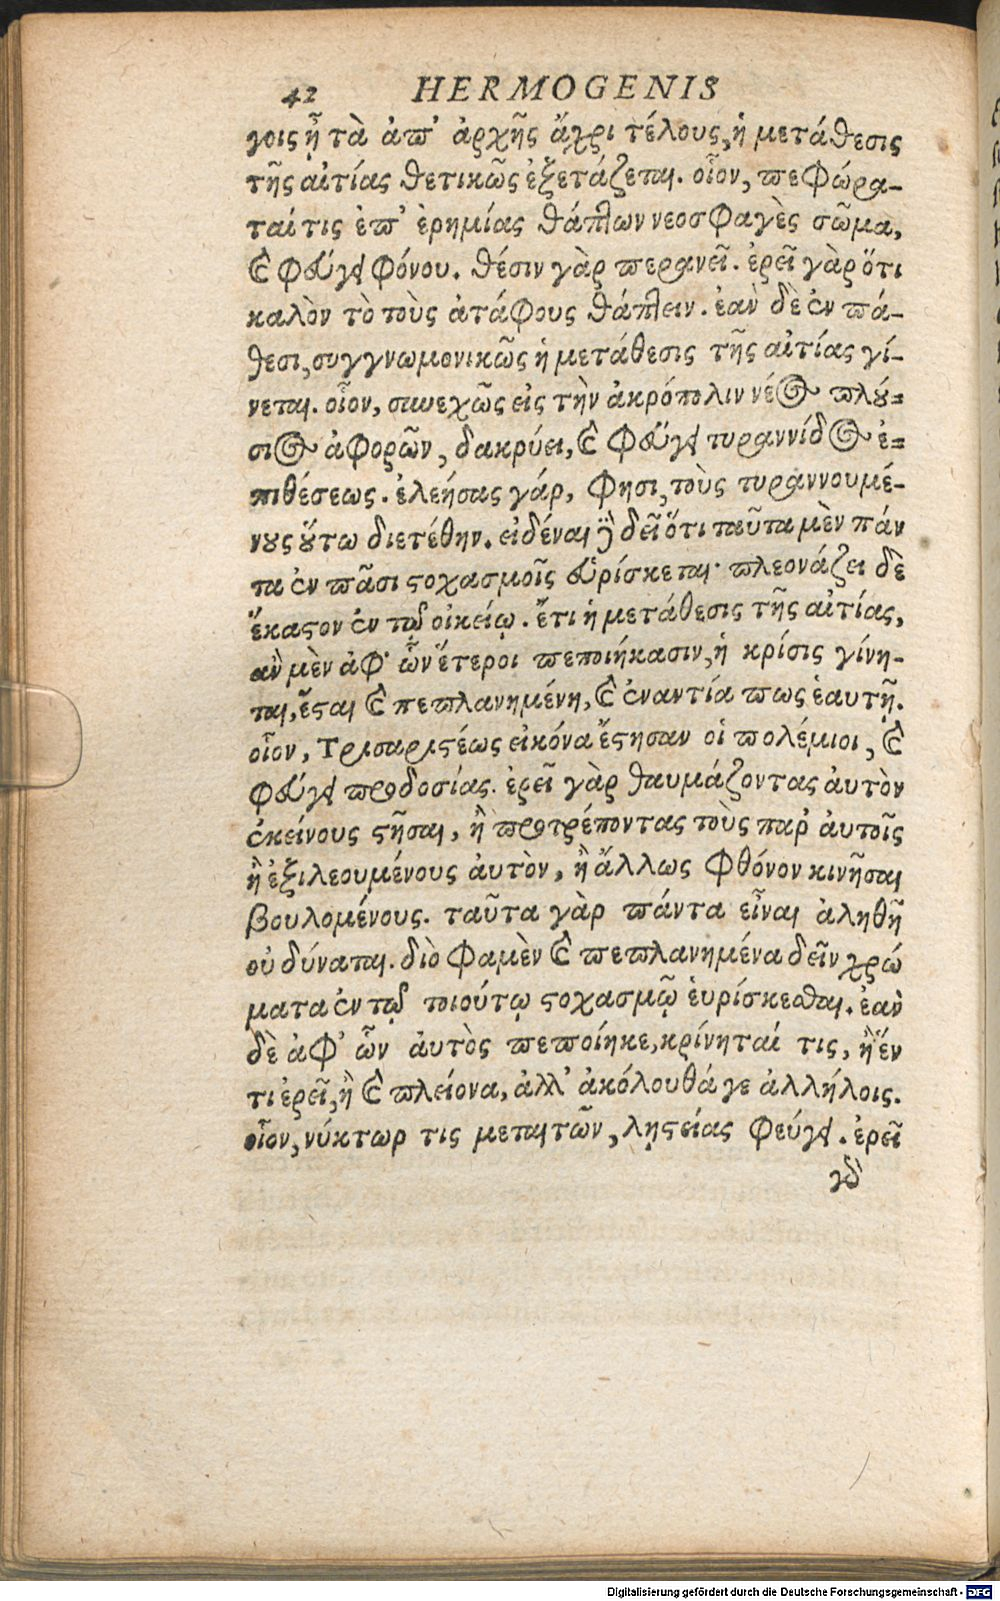 42 HERMOGENIS
γοις ᾖ τὰ ἀπ' ἀρχῆς ἄχρι τέλους, ἡ μετάθεσις
τῆς αἰτίας θετικῶς ἐξετάζεται. οἷον, πεφώρα-
ταί τις ἐπ' ἐρημίας θάπτων νεοσφαγὲς σῶμα,
καὶ φεύγει φόνου. θέσιν γὰρ περανεῖ. ἐρεῖ γὰρ ὅτι
καλὸν τὸ τοὺς ἀτάφους θάπτειν. ἐὰν δὲ ἐν πά-
θεσι, συγγνωμονικῶς ἡ μετάθεσις τῆς αἰτίας γί-
νεται. οἷον, συνεχῶς εἰς τὴν ἀκρόπολιν νέος πλού-
σιος ἀφορῶν, δακρύει, καὶ φεύγει τυραννίδος ἐ-
πιθέσεως. ἐλεήσας γάρ, φησι, τοὺς τυραννουμέ-
νους οὕτω διετέθην. εἰδέναι δὲ δεῖ ὅτι ταῦτα μὲν πάν
τα ἐν πᾶσι στοχασμοῖς εὑρίσκεται· πλεονάζει δὲ
ἕκαστον ἐν τῷ οἰκείῳ. ἔτι ἡ μετάθεσις τῆς αἰτίας,
ἂν μὲν ἀφ' ὧν ἕτεροι πεποιήκασιν, ἡ κρίσις γίνη-
ται, ἔσται καὶ πεπλανημένη, καὶ ἐναντία πως ἑαυτῇ.
οἷον, Τρισαριστέως εἰκόνα ἔστησαν οἱ πολέμιοι, καὶ
φεύγει προδοσίας. ἐρεῖ γὰρ θαυμάζοντας αὐτὸν
ἐκείνους στῆσαι, ἢ προτρέποντας τοὺς παρ' αὐτοῖς
ἢ ἐξιλεουμένους αὐτὸν, ἢ ἄλλως φθόνον κινῆσαι
βουλομένους. ταῦτα γὰρ πάντα εἶναι ἀληθῆ
οὐ δύναται. διὸ φαμὲν καὶ πεπλανημένα δεῖν χρώ
ματα ἐν τῷ τοιούτῳ στοχασμῷ ἑυρίσκεσθαι. ἐὰν
δὲ ἀφ' ὧν αὐτὸς πεποίηκε, κρίνηταί τις, ἢ ἕν
τι ἐρεῖ, ἢ καὶ πλείονα, ἀλλ' ἀκόλουθά γε ἀλλήλοις.
οἷον, νύκτωρ τις μεταιτῶν, λῃστείας φεύγει. ἐρεῖ
γὸ
Digitalisierung gefördert durch die Deutsche Forschungsgemeinschaft - DFG